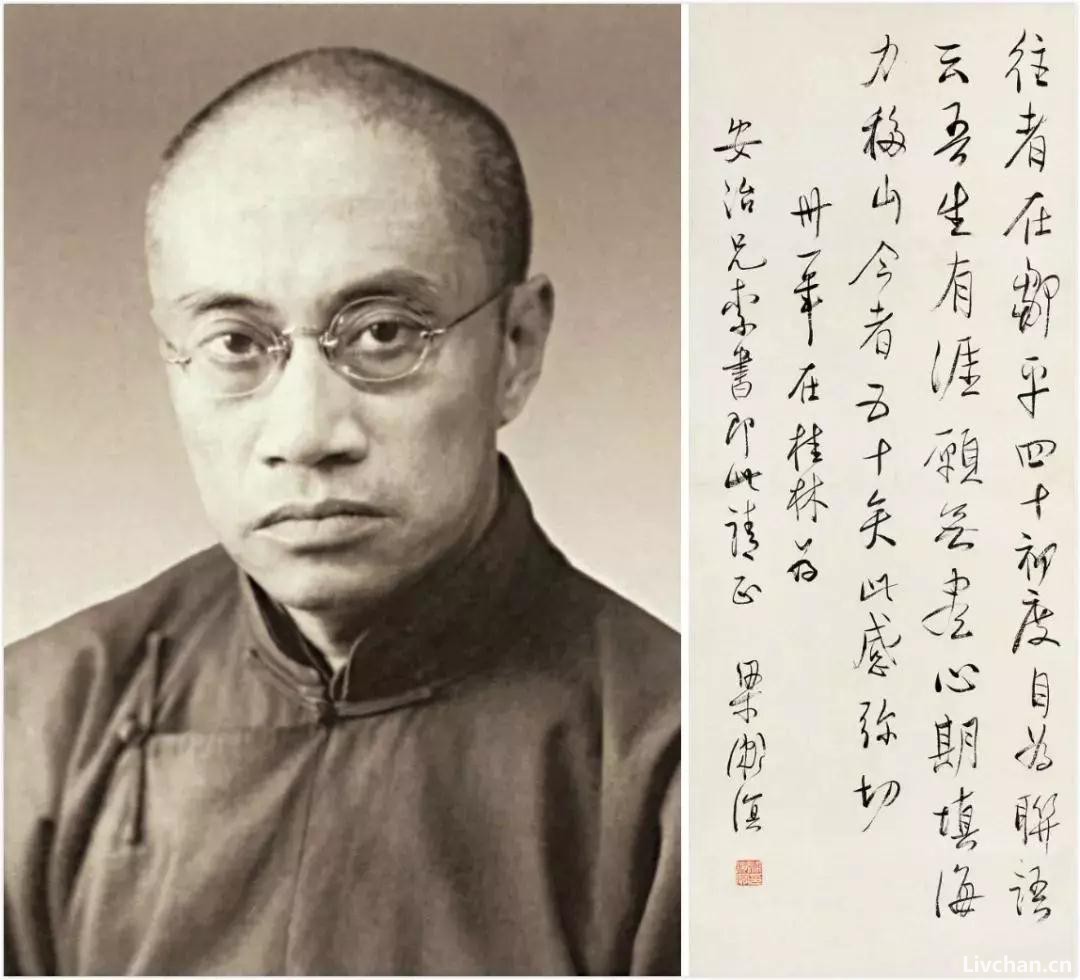 往者在鄒平四十初度自为聯語
云吾生有涯願无盡心期填海
力移山今者五十矣此感弥切
卅一年在桂林为
安治兄索書即此請正 梁漱溟
Livchan.cn